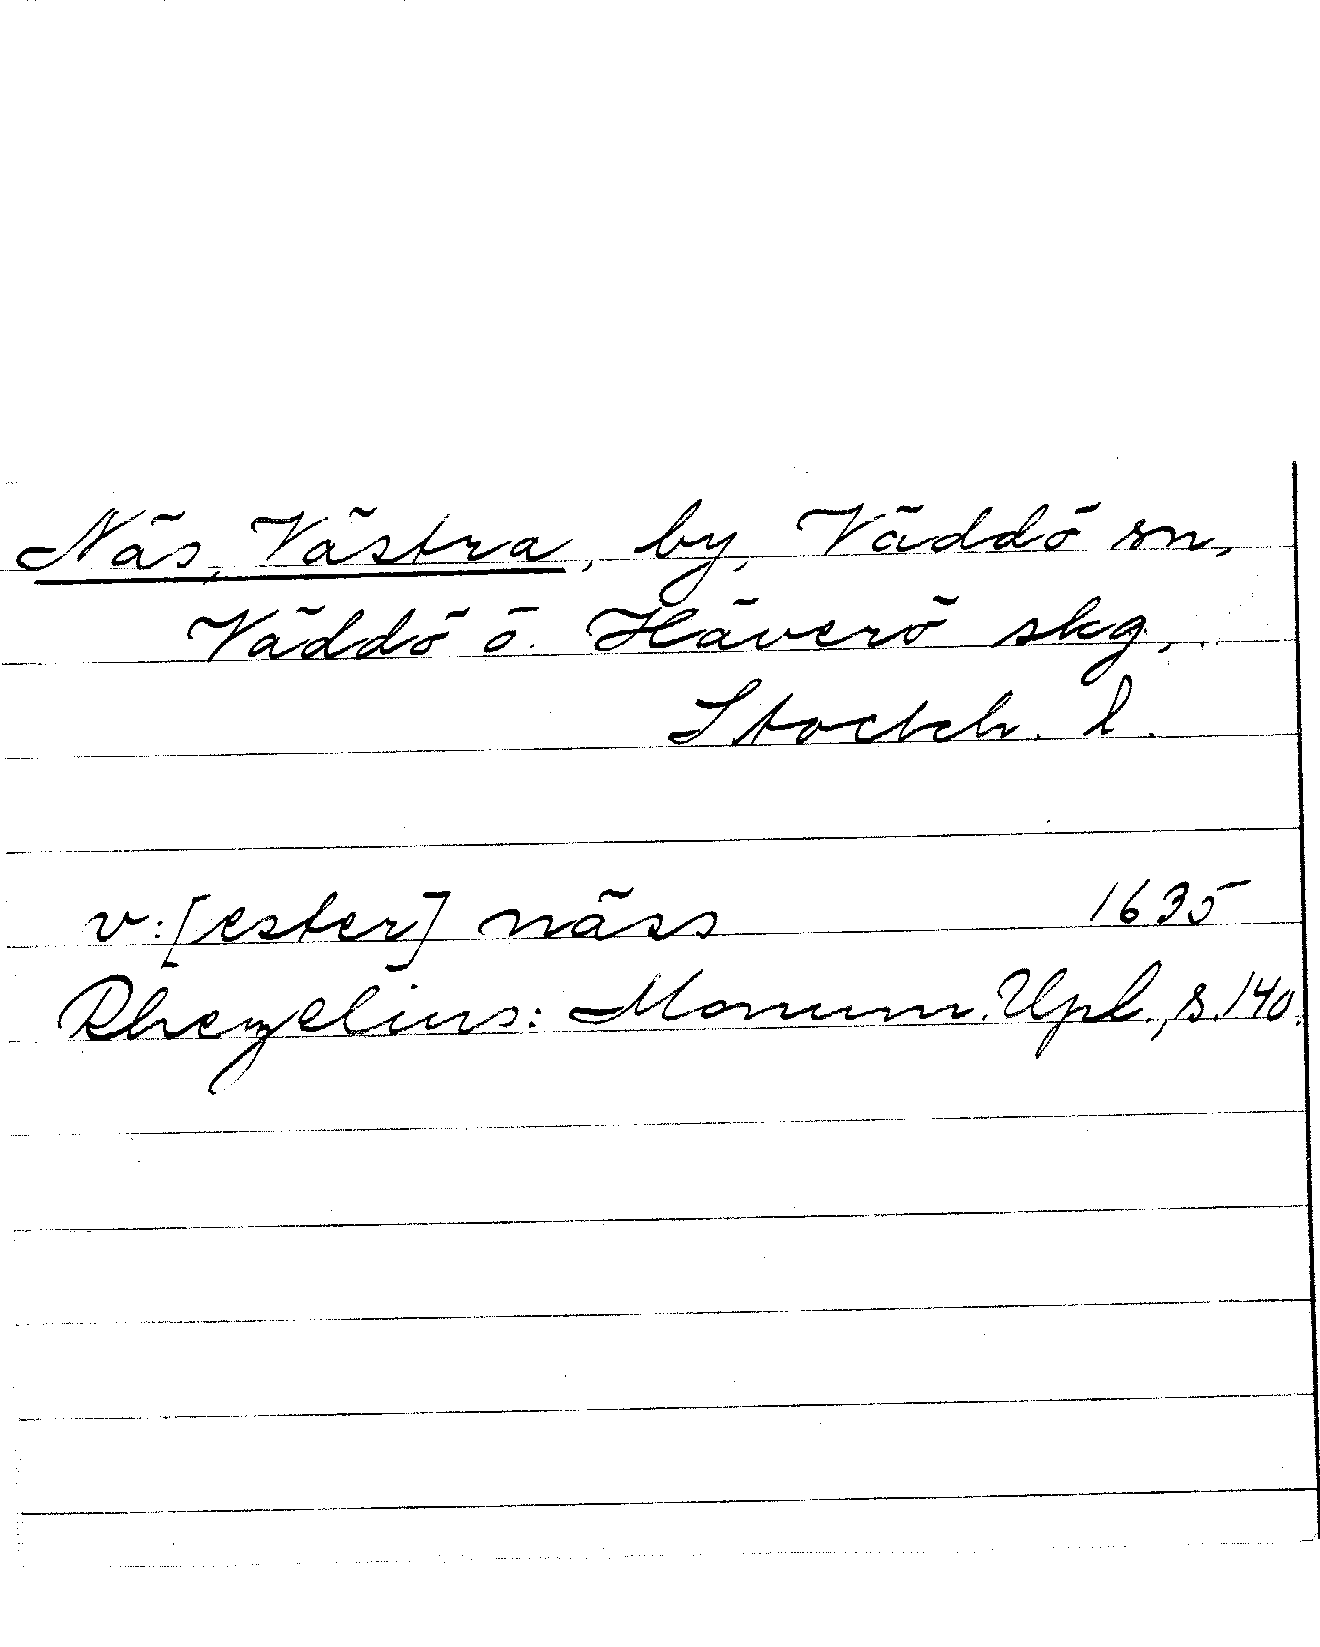 Näs, Västra, by, Väddö sn,
Väddö o. Häverö skg,
Stockh. l.
v:[ester] näss 1635
Rhezelius: Monum. Upl., s. 140.